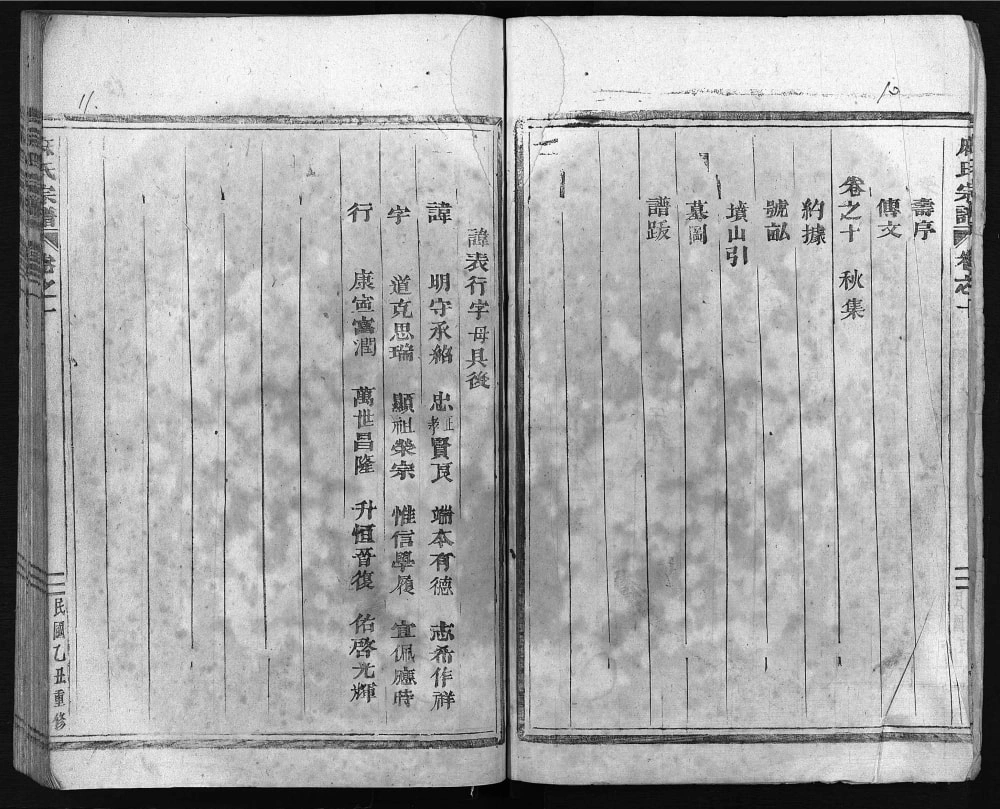 10
麻氏宗譜 卷之一
壽序
傳文
卷之十 秋集
約據
號畝
墳山引
墓圖
譜跋
11.
諱表行字母具後
諱 明守承紹 忠正孝賢良 端本有德 志希作祥
字 道克思瑞 顯祖榮宗 惟信學履 宜佩應時
行 康寍富潤 萬世昌隆 升恒晉復 佑啓光輝
麻氏宗譜 卷之一
民國乙丑重修